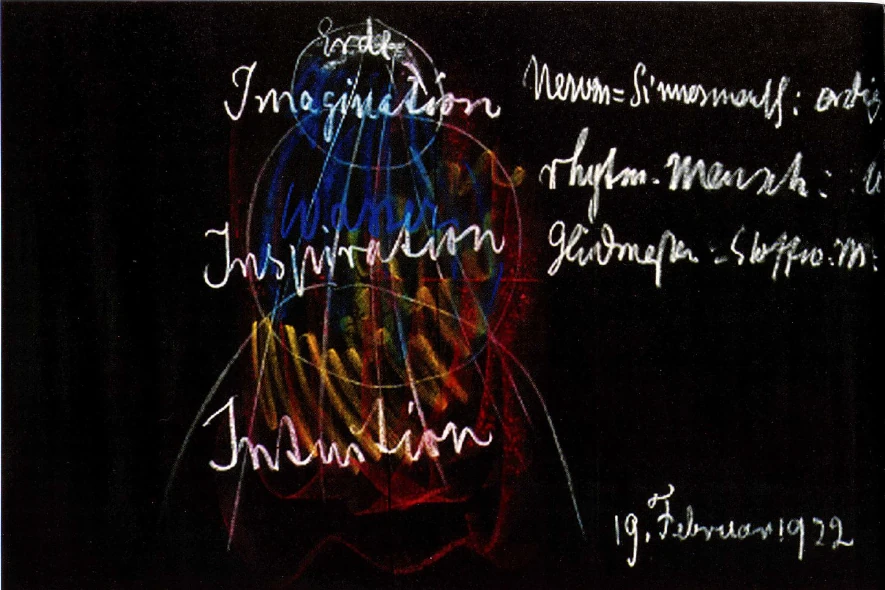 Erde
Imagination
Wasser
Inspiration
Intuition
Nerven=Sinnesmensch: erdig
rhytm. Mensch:
Gliedmaßen - Stoffw. M.
19. Februar 1922